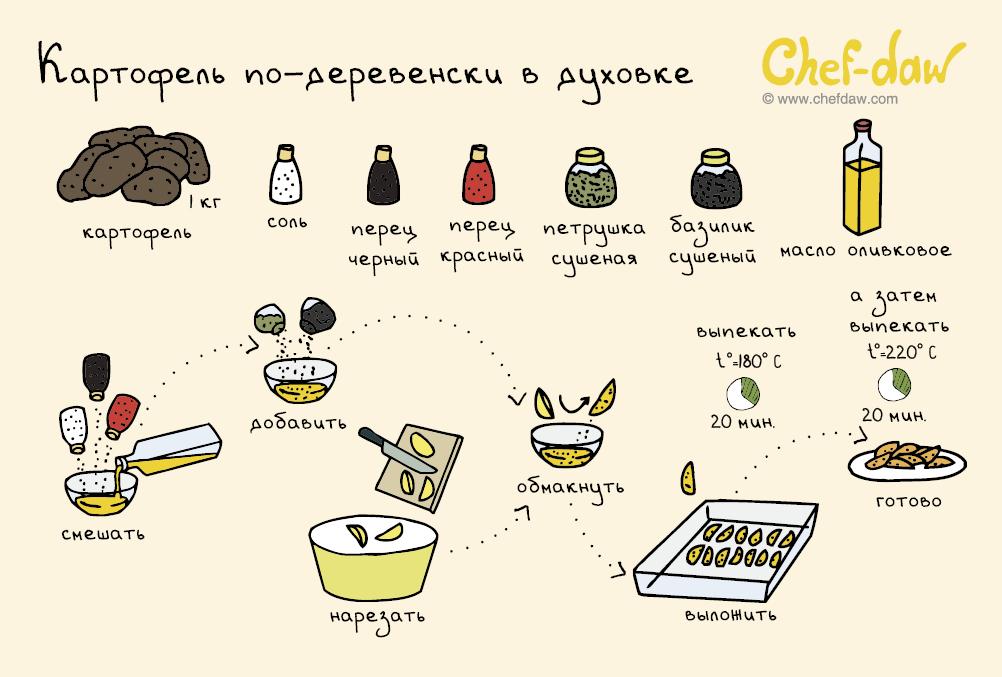 Картофель по-деревенски в духовке
Chef-daw
© www.chefdaw.com
1 кг
картофель
соль
перец
черный
перец
красный
петрушка
сушеная
базилик
сушеный
масло оливковое
смешать
добавить
нарезать
обмакнуть
выложить
выпекать
t°=180° C
20 мин.
а затем
выпекать
t°=220° C
20 мин.
готово